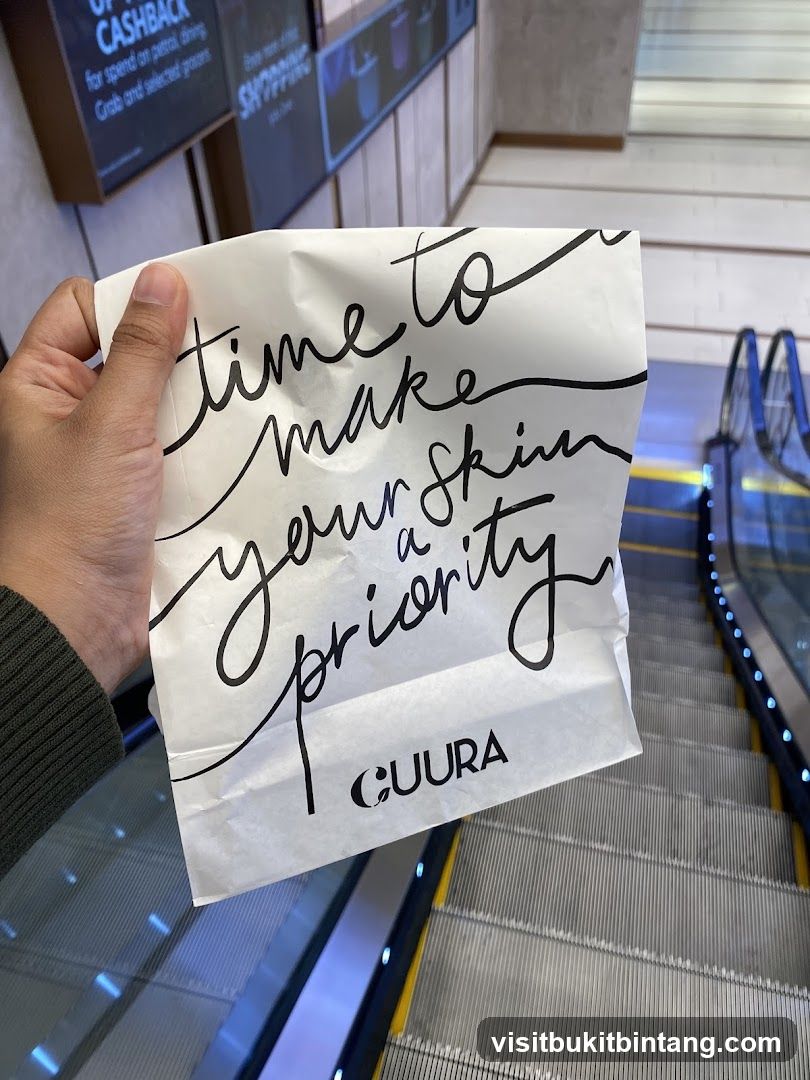 CASHBACK
for spend on petrol, dining,
Grab and selected grocers
SHOPPING
time to
make
your skin
a
priority
CUURA
visitbukitbintang.com